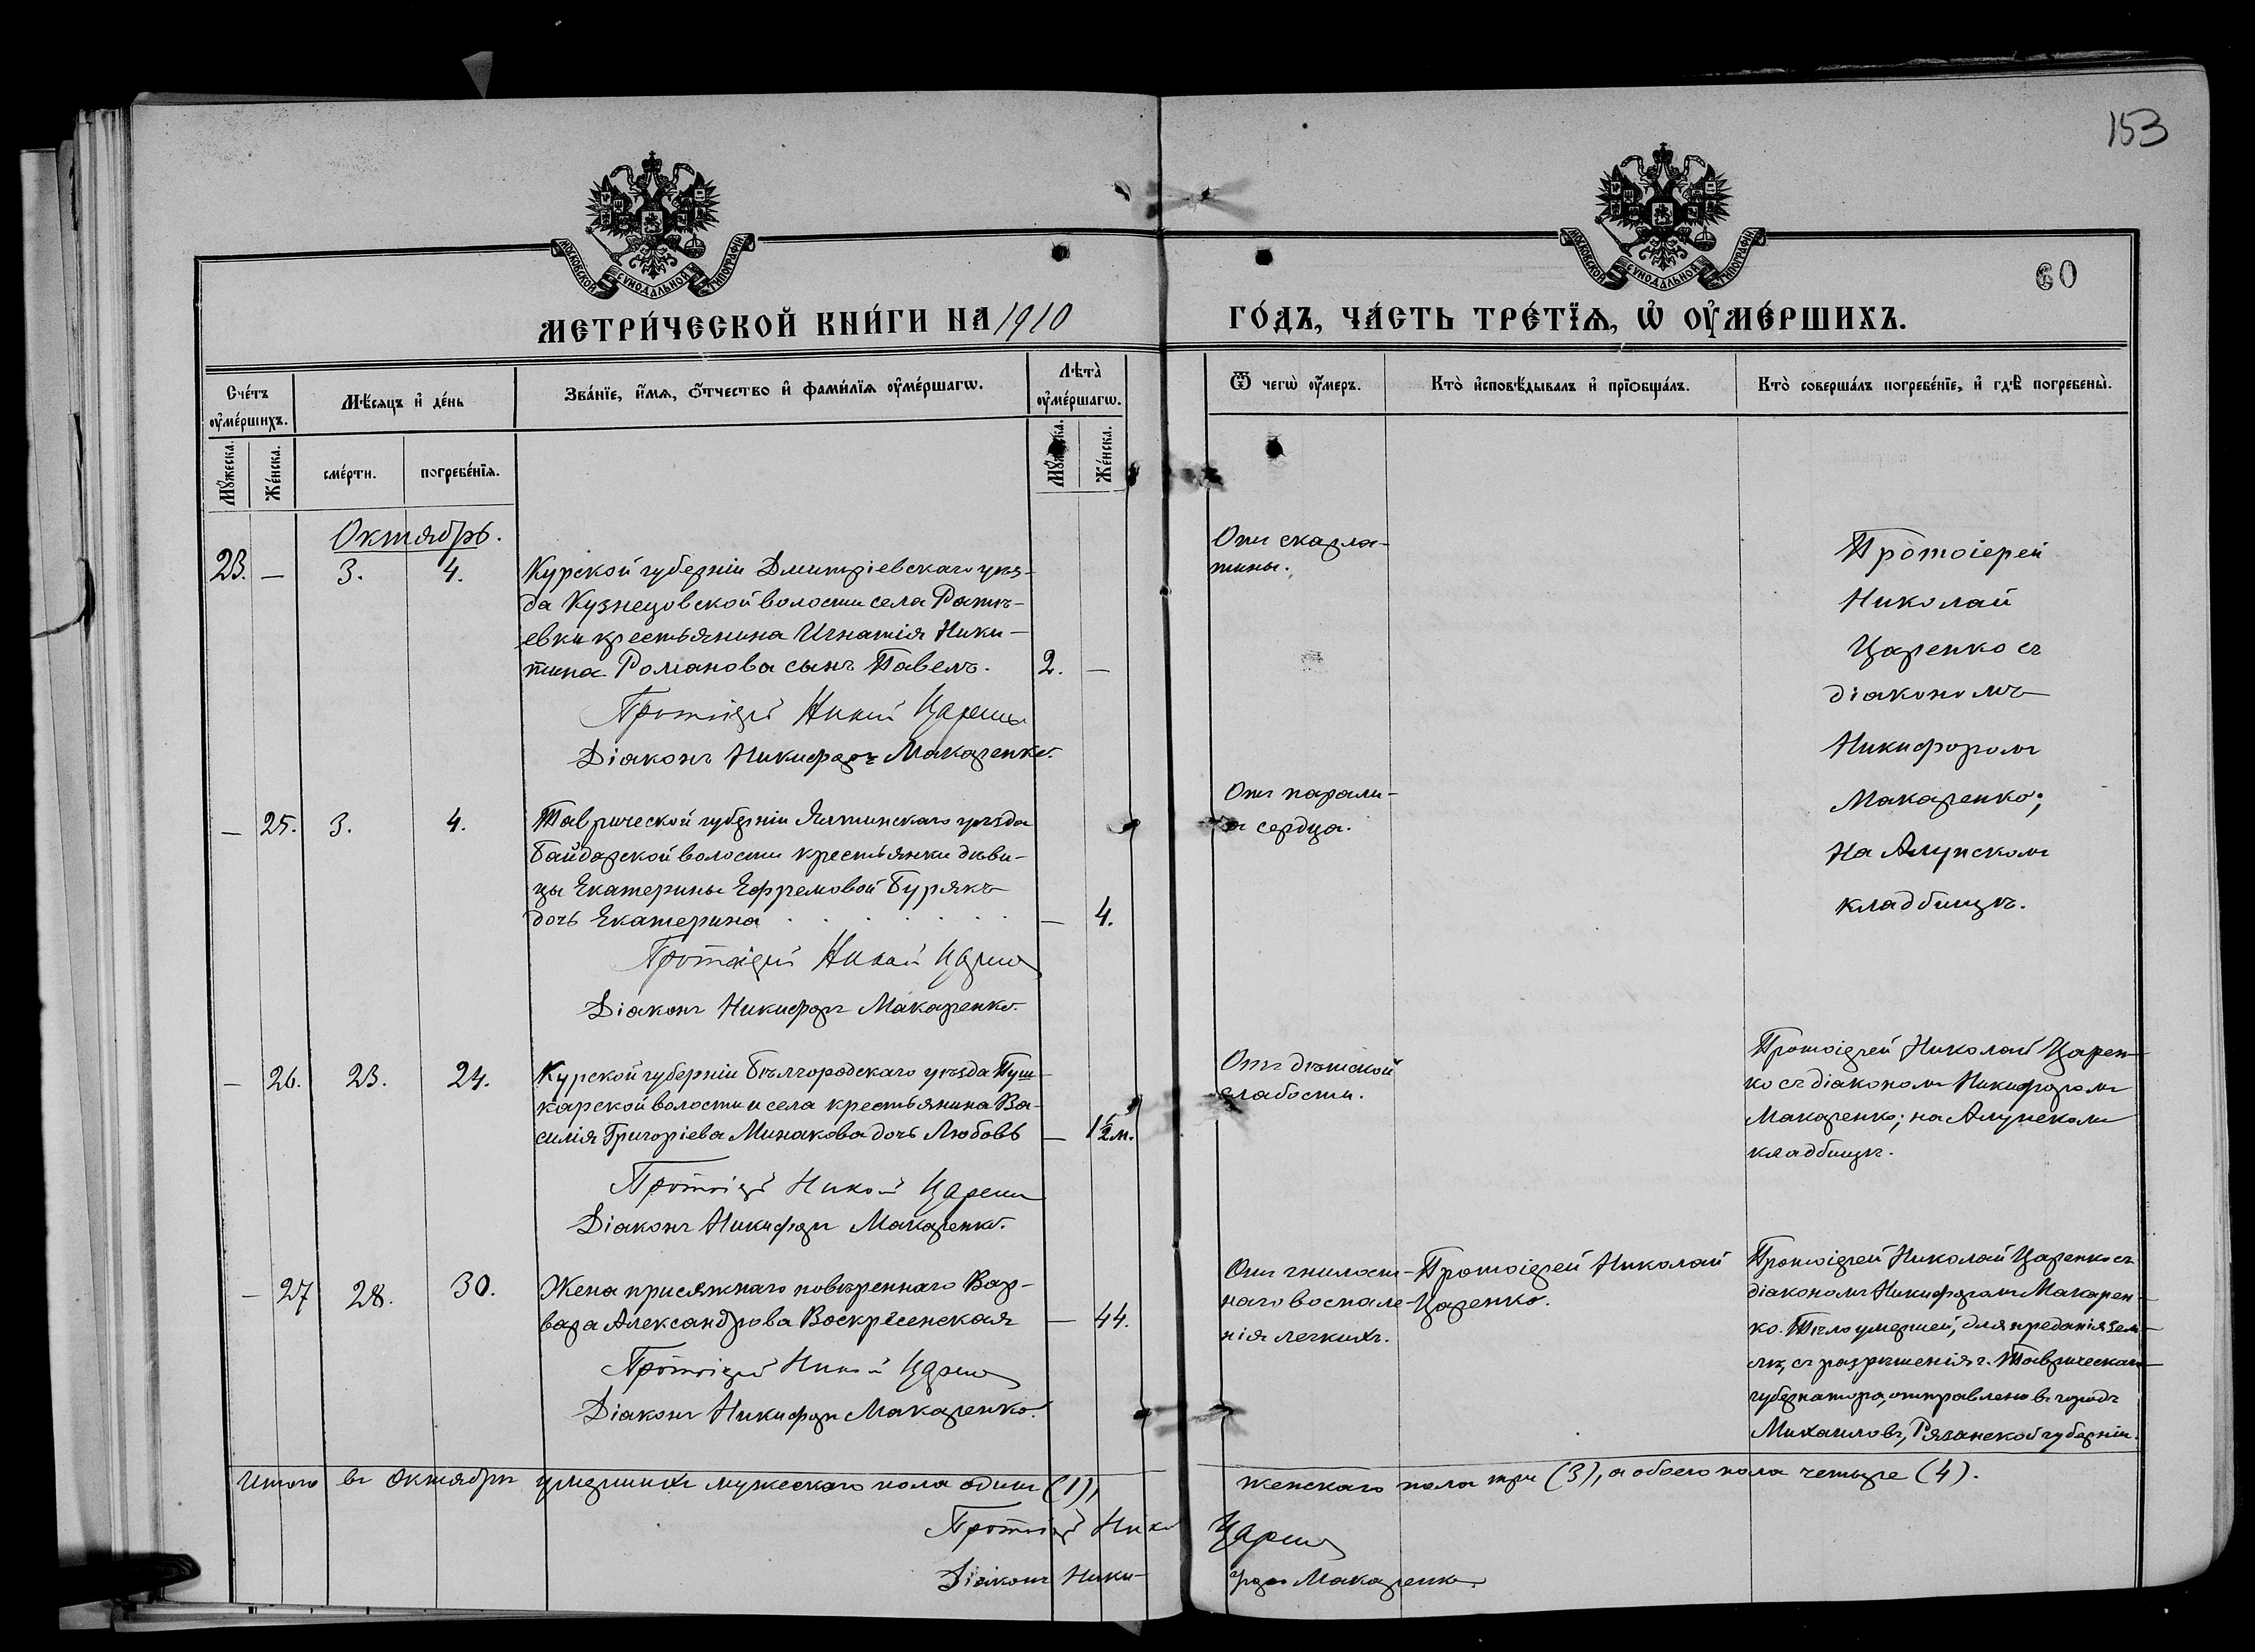 153
МОСКОВСКОЙ СѴНОДАЛЬНОЙ ТИПОГРАФІИ
МОСКОВСКОЙ СѴНОДАЛЬНОЙ ТИПОГРАФІИ
60
МЕТРИ́ЧЕСКОЙ КНИ́ГИ НА 1910
ГО́ДЪ, ЧА́СТЬ ТРЕ́ТЇѦ, Ѡ҆ ОУ҆МЕ́РШИХЪ.
Сче́тъ оу҆ме́ршихъ.
Мѣ́сѧцъ и҆ де́нь
Зва́нїе, и҆́мѧ, ѻ҆́тчество и҆ фами́лїѧ оу҆ме́ршагѡ.
Лѣта̀ оу҆ме́ршагѡ.
Ѿ чегѡ̀ оу҆́меръ.
Кто̀ и҆сповѣ́дывалъ и҆ прїѡбща́лъ.
Кто̀ соверша́лъ погребе́нїе, и҆ гдѣ̀ погребены̀.
Мꙋ́жеска.
Же́нска.
сме́рти.
погребе́нїѧ.
Мꙋ́жеска.
Же́нска.
Октябрь.
23. — 3. 4.
Курской губерніи Дмитріевскаго уѣз-
да Кузнецовской волости села Ратъ-
евки крестьянина Игнатія Ники-
тина Романова сынъ Павелъ. 2. —
Протоіерей Николай Царенко
Діаконъ Никифоръ Макаренко.
Отъ скарла-
тины.
Протоіерей
Николай
Царенко съ
діакономъ
Никифоромъ
Макаренко;
на Алупскомъ
кладбищѣ.
— 25. 3. 4.
Таврической губерніи Ялтинскаго уѣзда
Байдарской волости крестьянки дѣви-
цы Екатерины Ефремовой Бурякъ
дочь Екатерина . . . . . . . — 4.
Протоіерей Николай Царенко
Діаконъ Никифоръ Макаренко.
Отъ парали-
ча сердца.
— 26. 23. 24.
Курской губерніи Бѣлгородскаго уѣзда Пуш-
карской волости и села крестьянина Ва-
силія Григоріева Минакова дочь Любовь — 1½ м.
Протоіерей Николай Царенко
Діаконъ Никифоръ Макаренко.
Отъ дѣтской
слабости.
Протоіерей Николай Царен-
ко съ діакономъ Никифоромъ
Макаренко; на Алупскомъ
кладбищѣ.
— 27 28. 30.
Жена присяжнаго повѣреннаго Вар-
вара Александрова Воскресенская — 44.
Протоіерей Николай Царенко
Діаконъ Никифоръ Макаренко.
Отъ гнилост-
наго воспале-
нія легкихъ.
Протоіерей Николай
Царенко.
Протоіерей Николай Царенко съ
діакономъ Никифоромъ Макарен-
ко. Тѣло умершей, для преданія зем-
лѣ, съ разрѣшенія г. Таврическаго
губернатора, отправлено въ городъ
Михайловъ, Рязанской губерніи.
Итого въ Октябрѣ умершихъ мужескаго пола одинъ (1), женскаго пола три (3), а обоего пола четыре (4).
Протоіерей Николай Царенко
Діаконъ Никифоръ Макаренко.